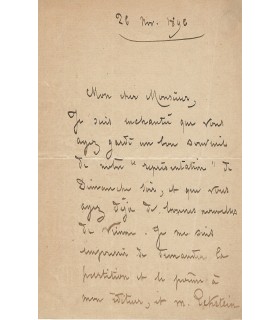 26 Nov. 1890
Mon cher Monsieur,
Je suis enchanté que vous
ayez gardé un bon souvenir
de notre "représentation" de
Dimanche soir, et que vous
ayez déjà de bonnes nouvelles
de Vienne. Je me suis
empressé de demander la
partition et le poème à
mon éditeur, et M. Eckstein